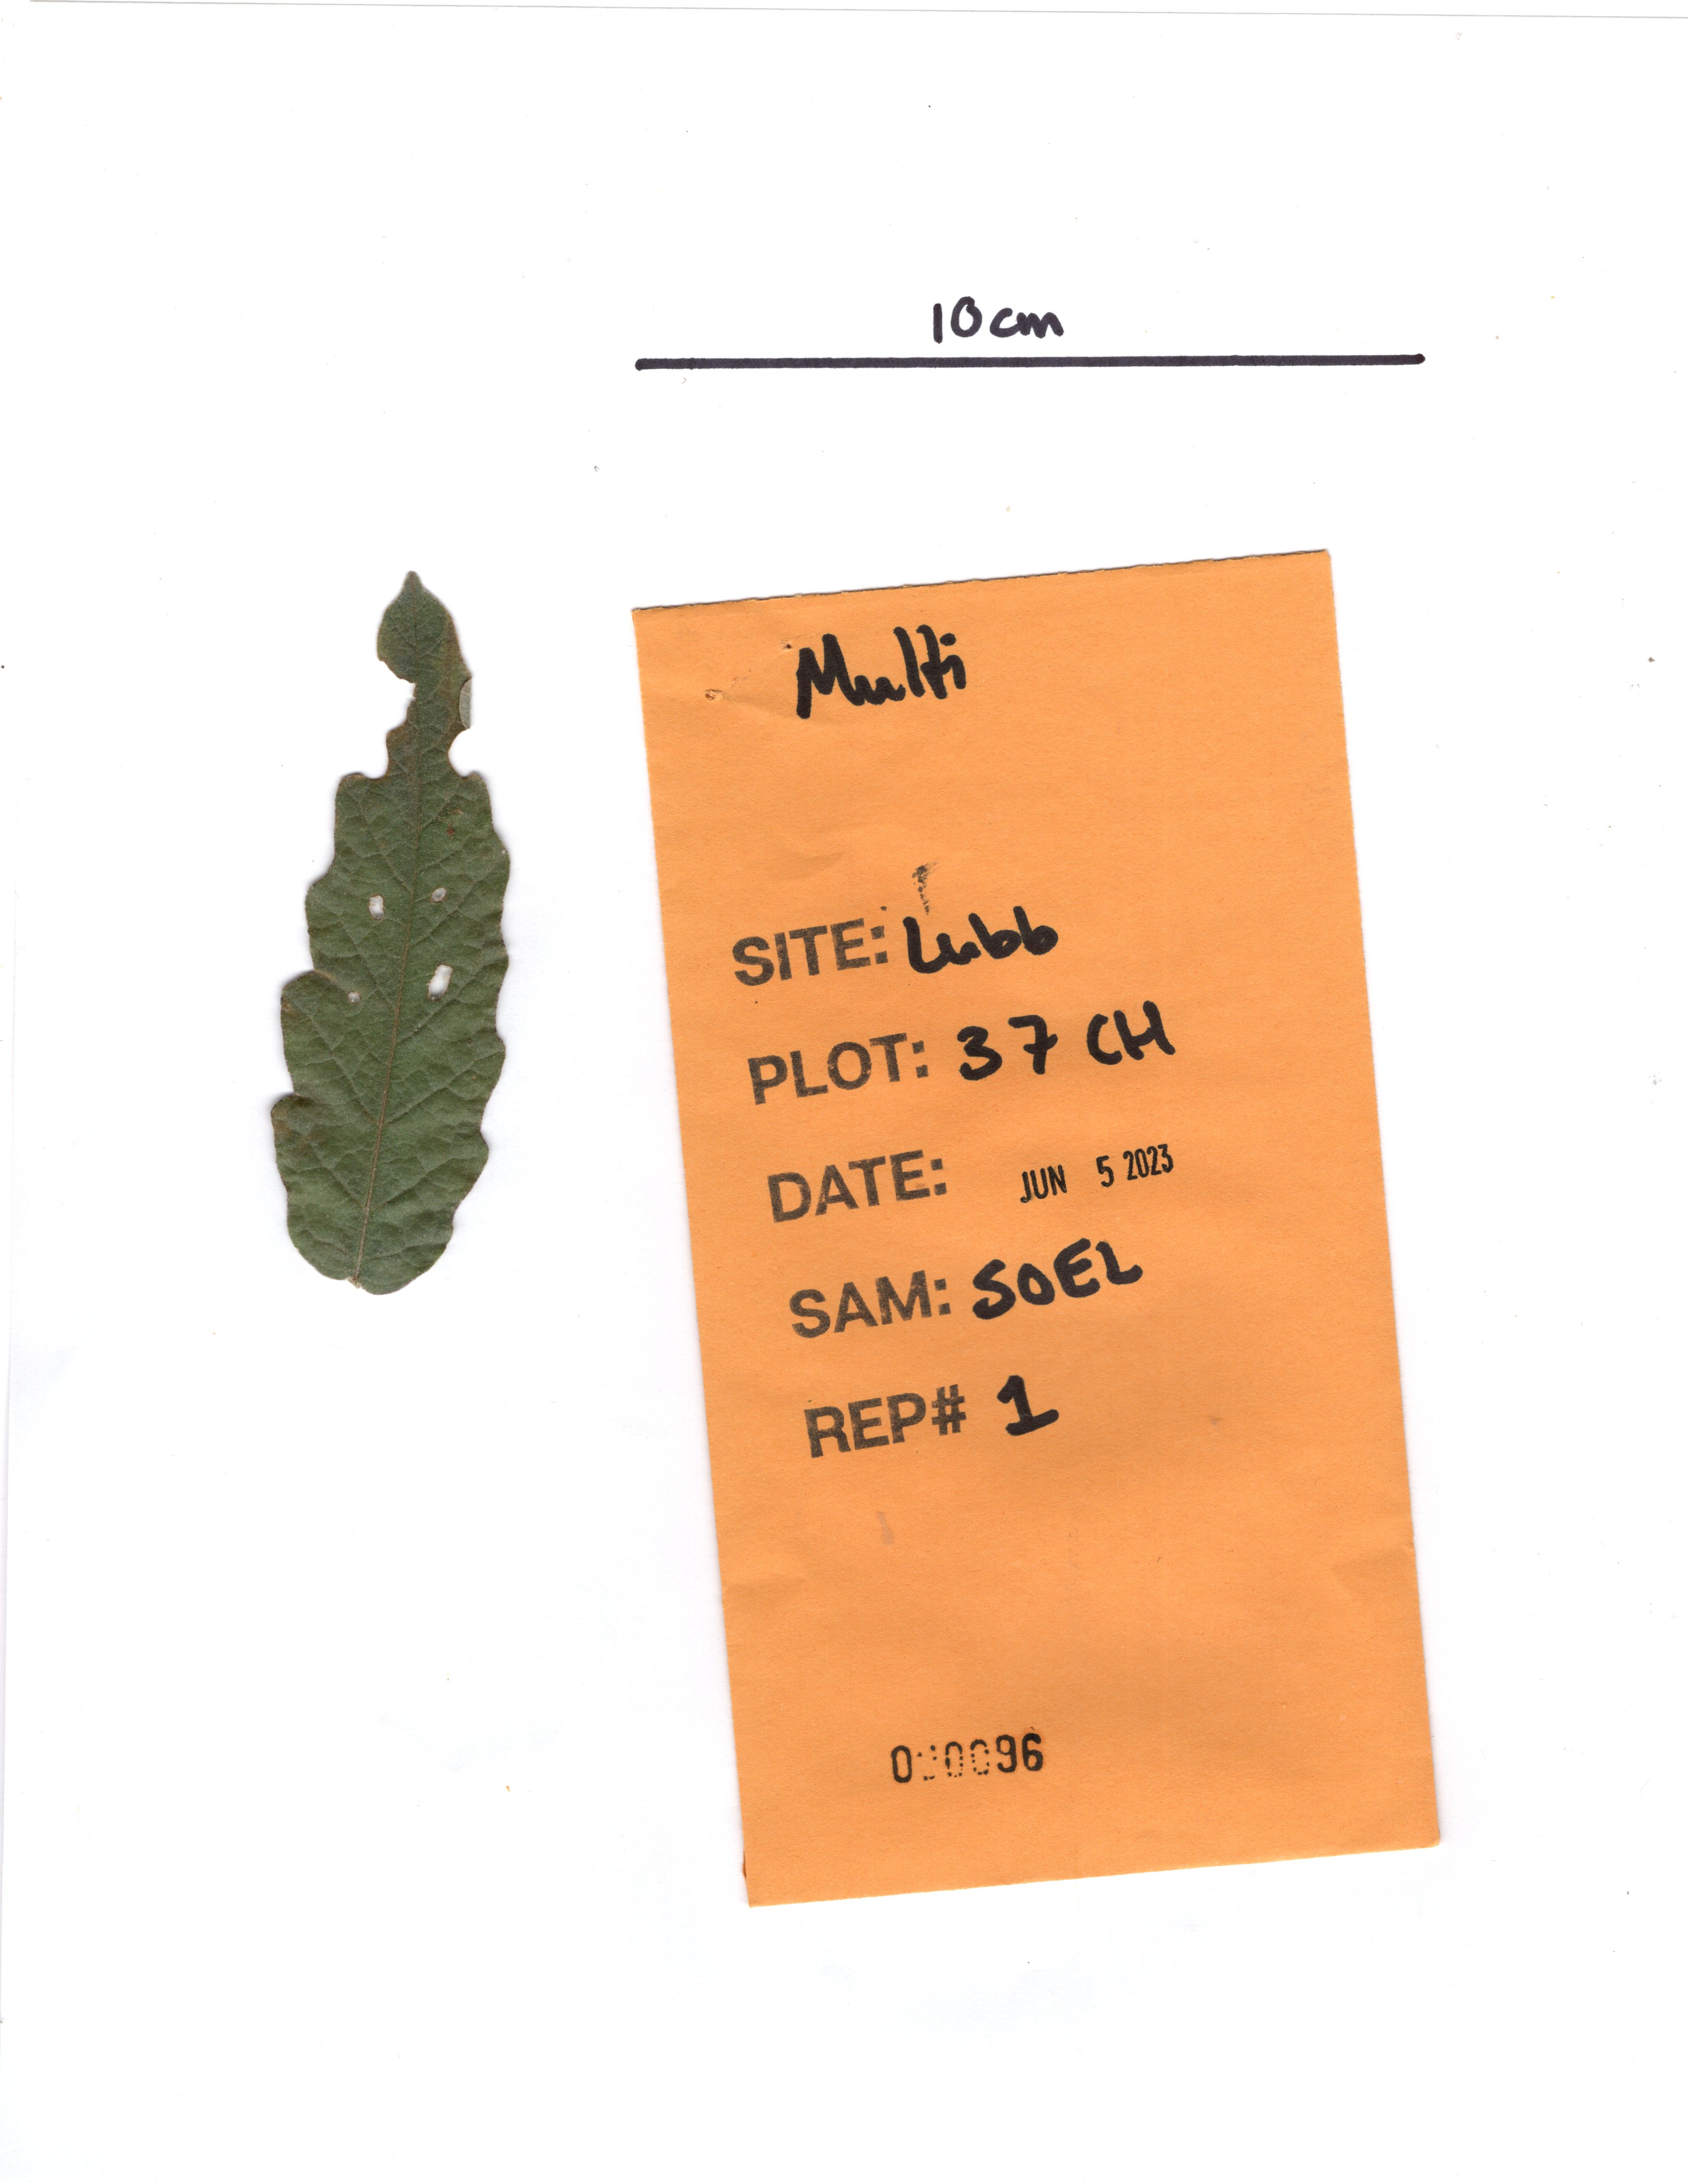 10cm
Multi
SITE: Lubb
PLOT: 37 CH
DATE: JUN 5 2023
SAM: SOEL
REP# 1
000096